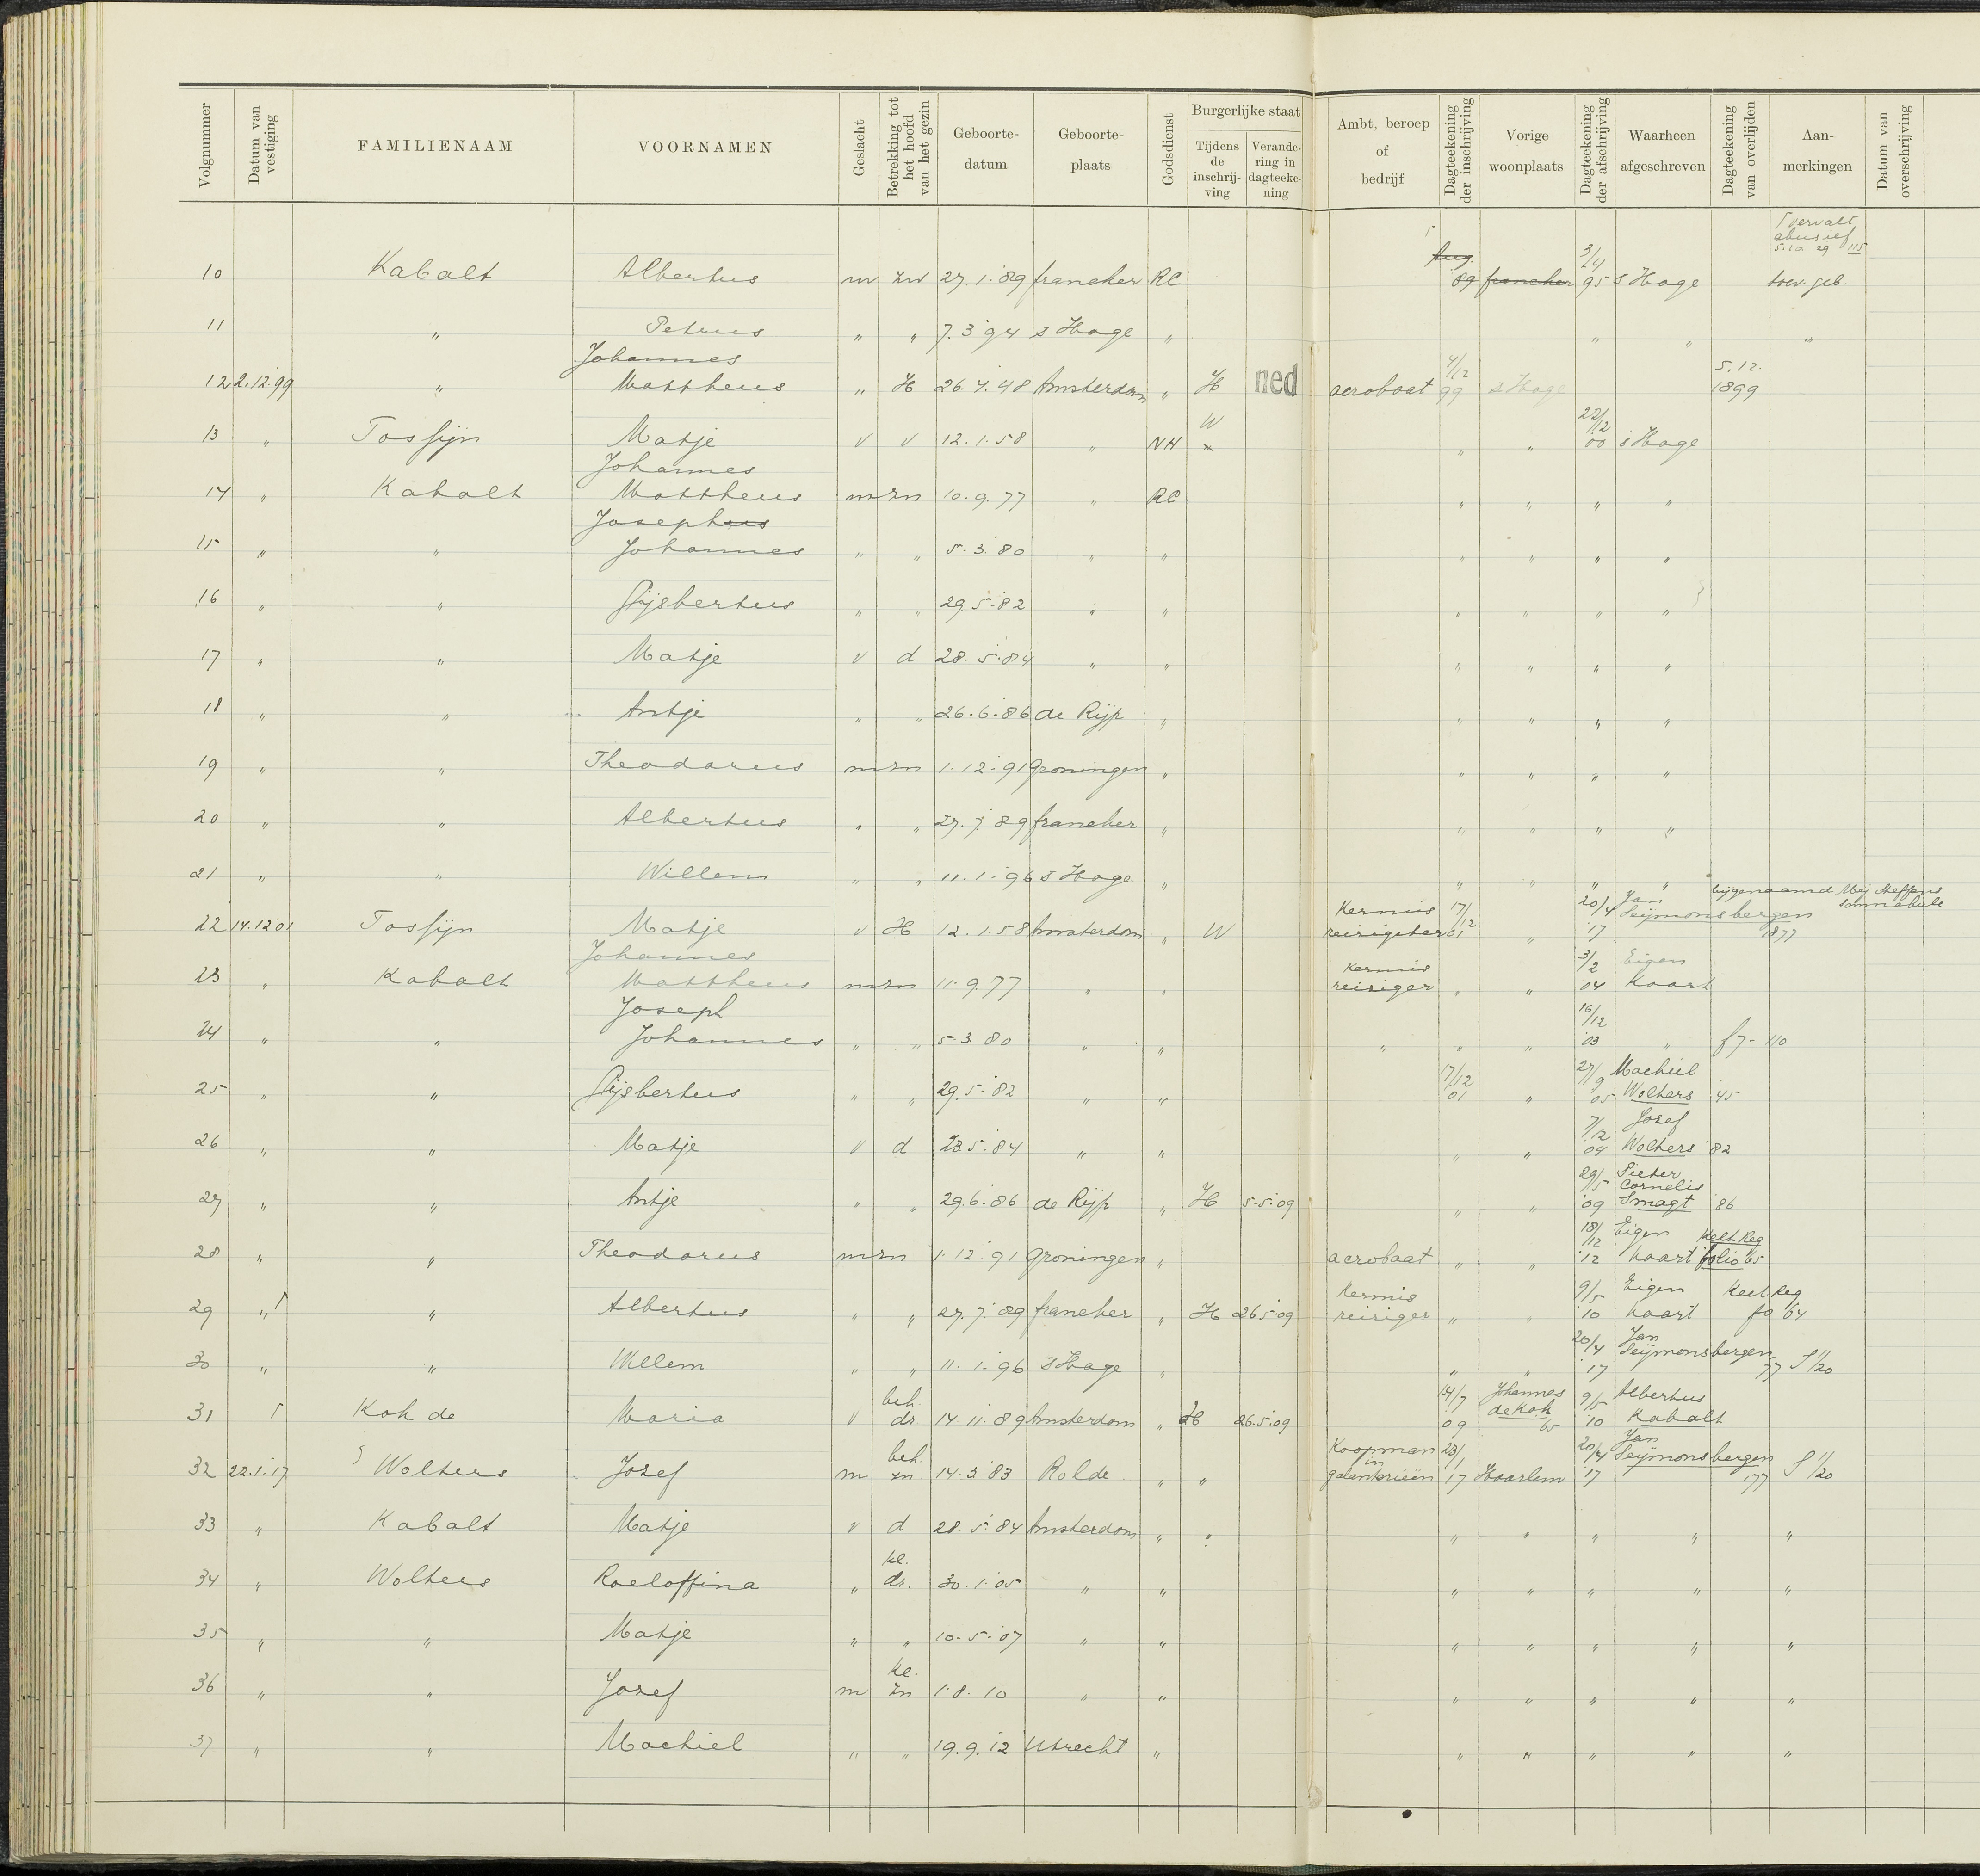 Volgnummer | Datum van vestiging | FAMILIENAAM | VOORNAMEN | Geslacht | Betrekking tot het hoofd van het gezin | Geboorte-datum | Geboorte-plaats | Godsdienst | Burgerlijke staat | Tijdens de inschrij-ving | Verande-ring in dagteeke-ning | Ambt, beroep of bedrijf | Dagteekening der inschrijving | Vorige woonplaats | Dagteekening der afschrijving | Waarheen afgeschreven | Dagteekening van overlijden | Aan-merkingen | Datum van overschrijving
vervalt
abusief
5.10 29 115
10 Kabalt Albertus m zn 27.1.'89 franeker RC Aug. 89 franeker 3/4 95 s Hage toev. geb.
11 " Petrus " " 7.3.'94 s Hage " " " "
12 2.12.'99 " Johannes Mattheus " H 26.4.48 Amsterdam " H ned acrobaat 4/12 99 s Hage 5.12. 1899
13 " Tossijn Matje v v 12.1.58 " NH W " " 22/12 00 s Hage
14 " Kabalt Johannes Mattheus m zn 10.9.77 " RC " " " "
15 " " Josephus Johannes " " 5.3.'80 " " " " " "
16 " " Gijsbertus " " 29.5.'82 " " " " " "
17 " " Matje v d 28.5.'84 " " " " " "
18 " " Antje " " 26.6.'86 de Rijp " " " " "
19 " " Theodorus m zn 1.12.'91 Groningen " " " " "
20 " " Albertus " " 27.7.'89 franeker " " " " "
21 " " Willem " " 11.1.'96 s Hage " " " " "
bijgenaamd Mej Steffens
22 14.12'01 Tossijn Matje v H 12.1.58 Amsterdam " W Kermis reizigster 17/12 01 " 20/4 '17 Jan Seijmonsbergen 1877
23 " Kabalt Johannes Mattheus m zn 11.9.77 " " Kermis reiziger " " 3/2 '04 Eigen Kaart
24 " " Joseph Johannes " " 5.3.80 " " " " " 16/12 '03 " f 7 - 110
25 " " Gijsbertus " " 29.5.'82 " " 17/12 '01 " 27/9 05 Machiel Wolters '45
26 " " Matje v d 23.5.'84 " " " " 7/12 '04 Josef Wolters '82
27 " " Antje " " 29.6.'86 de Rijp " H 5-5-'09 " " 29/5 '09 Pieter Cornelis Smagt '86
28 " " Theodorus m zn 1.12.'91 Groningen " acrobaat " " 18/12 '12 Eigen kaart Kelt. Reg folio 65
29 " " Albertus " " 27.7.'89 franeker " H 26.5.'09 Kermis reiziger " " 9/5 '10 Eigen kaart Kelt. Reg fo 64
30 " " Willem " " 11.1.'96 s Hage " " " 20/4 '17 Jan Seijmonsbergen 77 S 1/20
31 Kok de Maria v beh. dr. 14.11.'89 Amsterdam " H 26.5.'09 14/7 09 Johannes de Kok '65 9/5 '10 Albertus Kabalt
32 22.1.'17 Wolters Josef m beh. zn. 14.3.'83 Rolde " " Koopman in galanterieën 23/1 '17 Haarlem 20/4 '17 Jan Seijmonsbergen '77 S 1/20
33 " Kabalt Matje v d 28.5.'84 Amsterdam " " " " " " "
34 " Wolters Roeloffina " kl. dr. 30.1.'05 " " " " " " "
35 " " Matje " " 10.5.'07 " " " " " " "
36 " " Josef m kl. zn 1.8.10 " " " " " " "
37 " " Machiel " " 19.9.'12 Utrecht " " " " " "